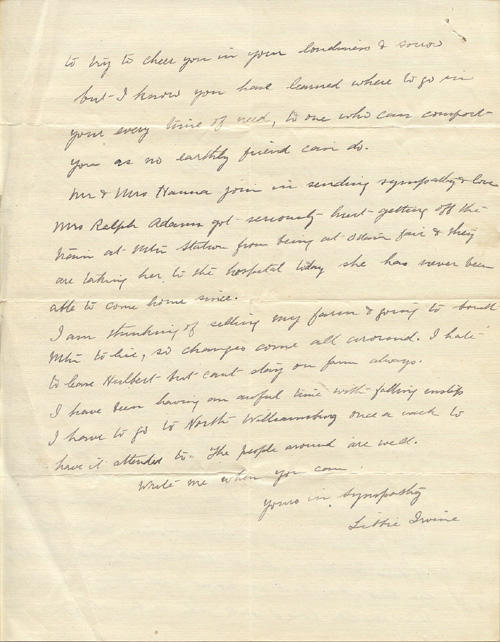 to try to cheer you in your loneliness & sorrow
but I know you have learned where to go in
your every time of need, to one who can comfort
you as no earthly friend can do.
Mr & Mrs Hanna join in sending sympathy & love
Mrs Ralph Adams got seriously hurt getting off the
train at Mtn Station from being at Ottawa fair & they
are taking her to the hospital today she has never been
able to come home since.
I am thinking of selling my farm & going to South
Mtn to live, so changes come all around. I hate
to leave Hulbert but cant stay on farm always.
I have been having an awful time with falling
I have to go to North Williamsburg once a week to
have it attended to. The people around are well.
Write me when you can.
Yours in Sympathy
Irvine